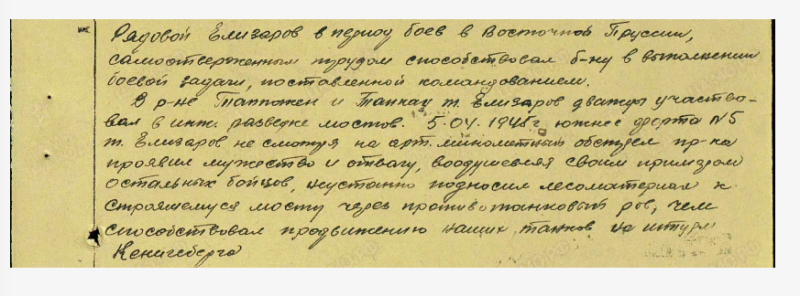 Рядовой Елизаров в период боев в Восточной Пруссии,
самоотверженным трудом способствовал б-ну в выполнении
боевой задачи, поставленной командованием.
В р-не Таппожен и Таннау т. Елизаров дважды участво-
вал в инж. разведке мостов. 5.04.1945г. южнее форта N5
т. Елизаров не смотря на арт. минометный обстрел пр-ка
проявил мужество и отвагу, воодушевляя своим примером
остальных бойцов, неустанно подносил лесоматериал к
строящемуся мосту через противотанковый ров, чем
способствовал продвижению наших танков на штурм
Кенигсберга